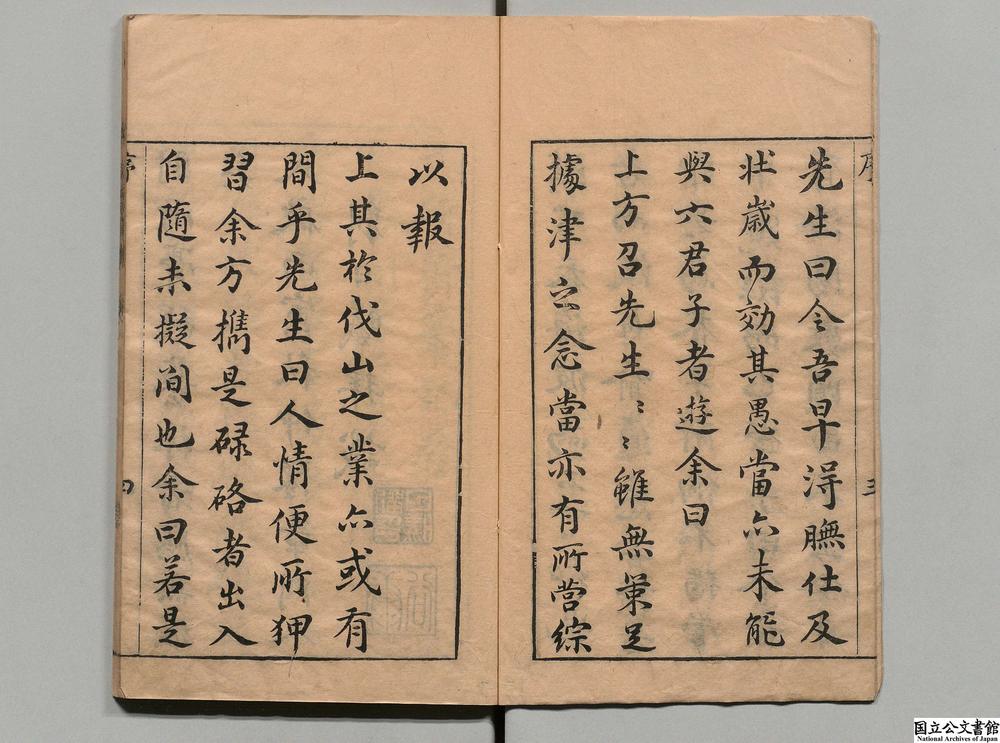 先生曰令吾早淂膴仕及
壯歲而効其愚當亦未能
與六君子者遊余曰
上方召先生〻〻雖無策足
據津之念當亦有所営綜
以報
上其於伐山之業亦或有
間乎先生曰人情便所狎
習余方擕是碌硌者出入
自隨未擬間也余曰若是
序
三
四
国立公文書館
National Archives of Japan